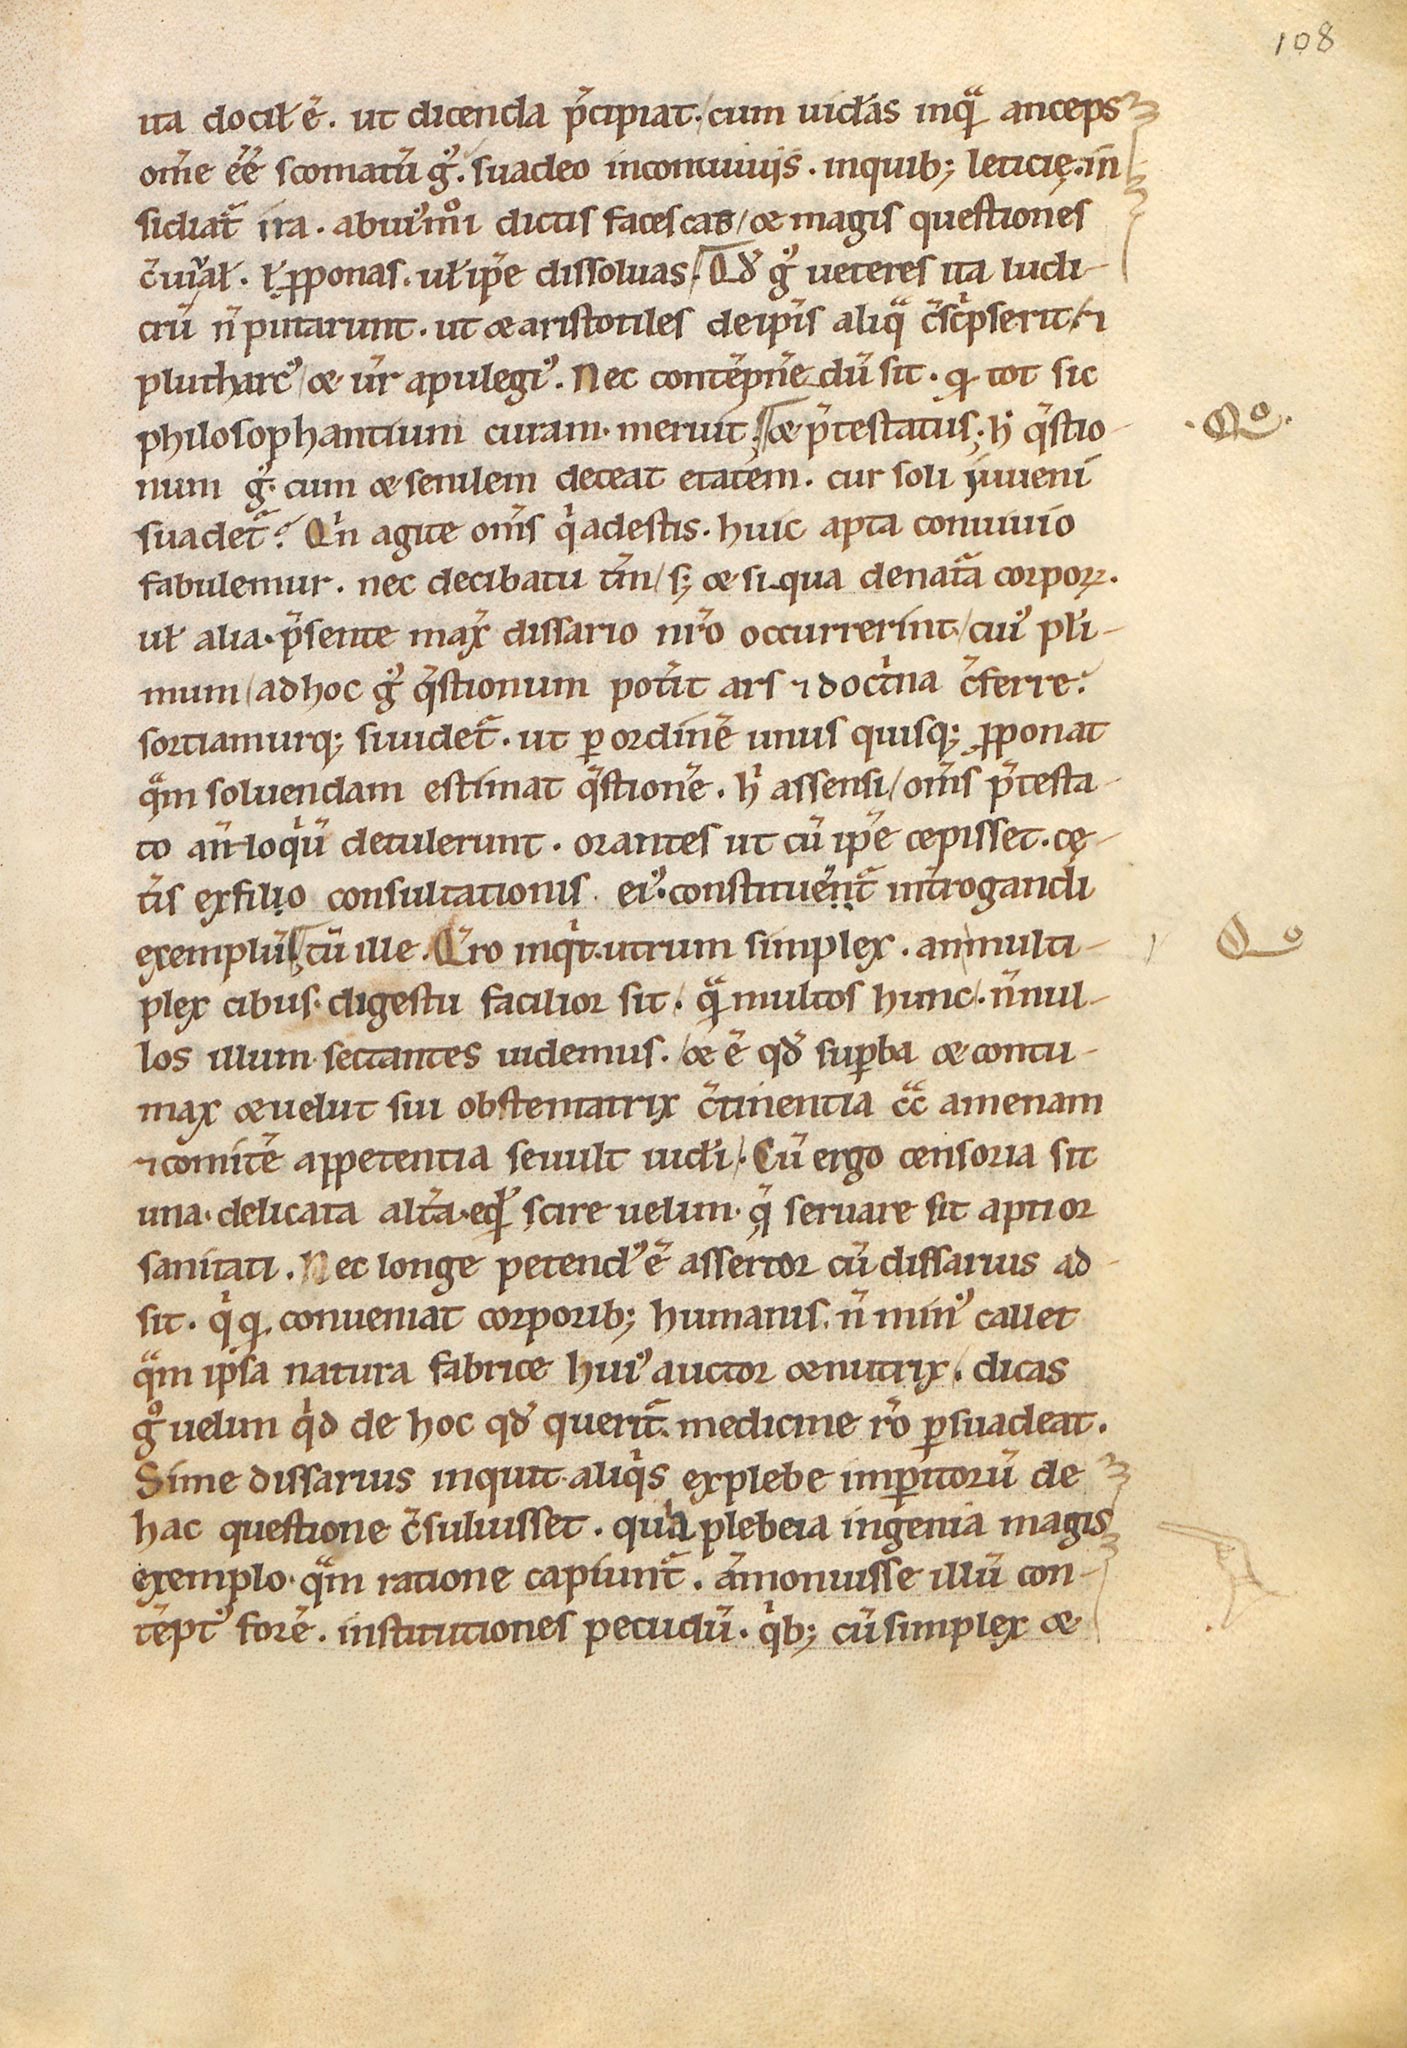 108
ita docił ē. ut dicenda p̄cipiat. cum uideas inq̄ anceps
om̄e ēē scomatū g°. suadeo inconuiuijs. inquib; leticię. in
sidiat̄ ira. abui'm°i dictis facescas/ & magis questiones
c̄uiuał. ł p̱ponas. uł ip̄e dissoluas. Qd̄ g° ueteres ita ludi-
crū n̄ putarunt. ut & aristotiles deip̄is aliq̄ c̄sc'pserit/ ⁊
plutharc' & ur̄ apulegi'. Nec contēpnēdū sit. q̱ tot sic
philosophantium curam. meruit. & p̄testatus; h' q̄stio-
·Q°·
num g°. cum & senilem deceat etatem. cur soli iuueni
suadet̄? Q'n agite om̄s q'adestis. huic apta conuiuio
fabulemur. nec decibatu tm̄/ s; & si qua denat̄a corpoꝝ.
uł alia. p̄sente max̄ dissario nr̄o occurrerint/ cui' pl'i-
mum/ adhoc g° q̄stionum pot'it ars ⁊ doct'na c̄ferre.
sortiamurq; siuidet̄. ut ꝑ ordinē unus quisq; p̱ponat
q̄m soluendam estimat q̄stionē. h' assensi/ om̄s p̄testa-
to an̄loq'ū detulerunt. orantes ut cū ip̄e cepisset. cę-
t'is exfilio consultationis ei'. constituēnt̄ int'rogandi
exemplū tū ille. Q̄ro inq't. utrum simplex. anmulti-
Q°
plex cibus. digestu facilior sit. q̄ multos hunc. n̄nul-
los illum sectantes uidemus. & ē qd̄ suꝑba & contu-
max & uelut sui obstentatrix c̄tinentia c̄c̄ amenam
⁊ comitē appetentia seuult uid'i. Cū ergo censoria sit
una. delicata alt'a. eq̱' scire uelim. q̄ seruare sit aptior
sanitati. Nec longe petend' ē assertor cū dissarius ad-
sit. q'q̱ conueniat corporib; humanis. n̄ min' callet
q̄m ipsa natura fabrice hui' auctor & nutrix. dicas
g° uelim q'd de hoc qd̄ querit̄. medicine r̄o ꝑsuadeat.
Sime dissarius inquit. aliq's explebe imꝑitorū de
hac questione c̄suluisset. quia plebeia ingenia magis
exemplo. q̄m ratione capiunt̄. a'monuisse illū con-
tēpt' forē. institutiones pecudū. q'b; cū simplex &